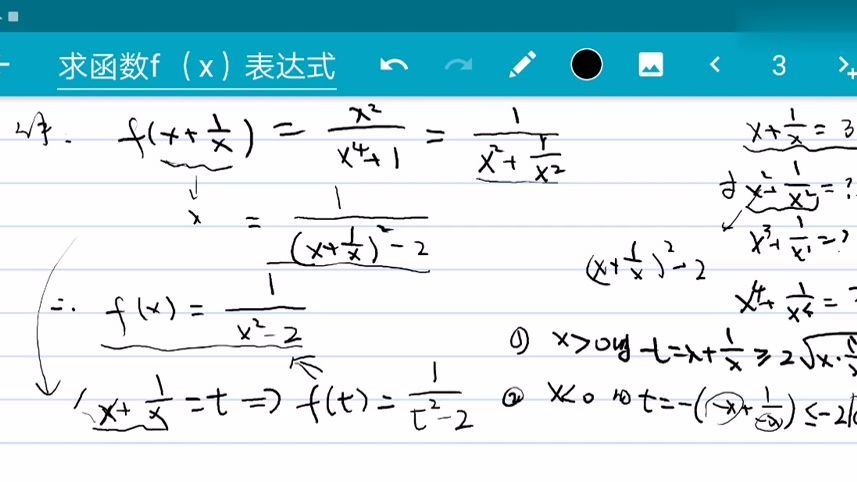 求函数f（x）表达式
3
解. f(x+1/x) = x²/(x⁴+1) = 1/(x²+1/x²)
x
= 1/((x+1/x)²-2)
∴ f(x) = 1/(x²-2)
x+1/x=t ⇒ f(t)=1/(t²-2)
x+1/x=3
求 x²+1/x²=?
x³+
x⁴+
(x+1/x)²-2
① x>0时 t=x+1/x≥2√x·
② x<0 时 t=-(-x+1/-x)≤-2